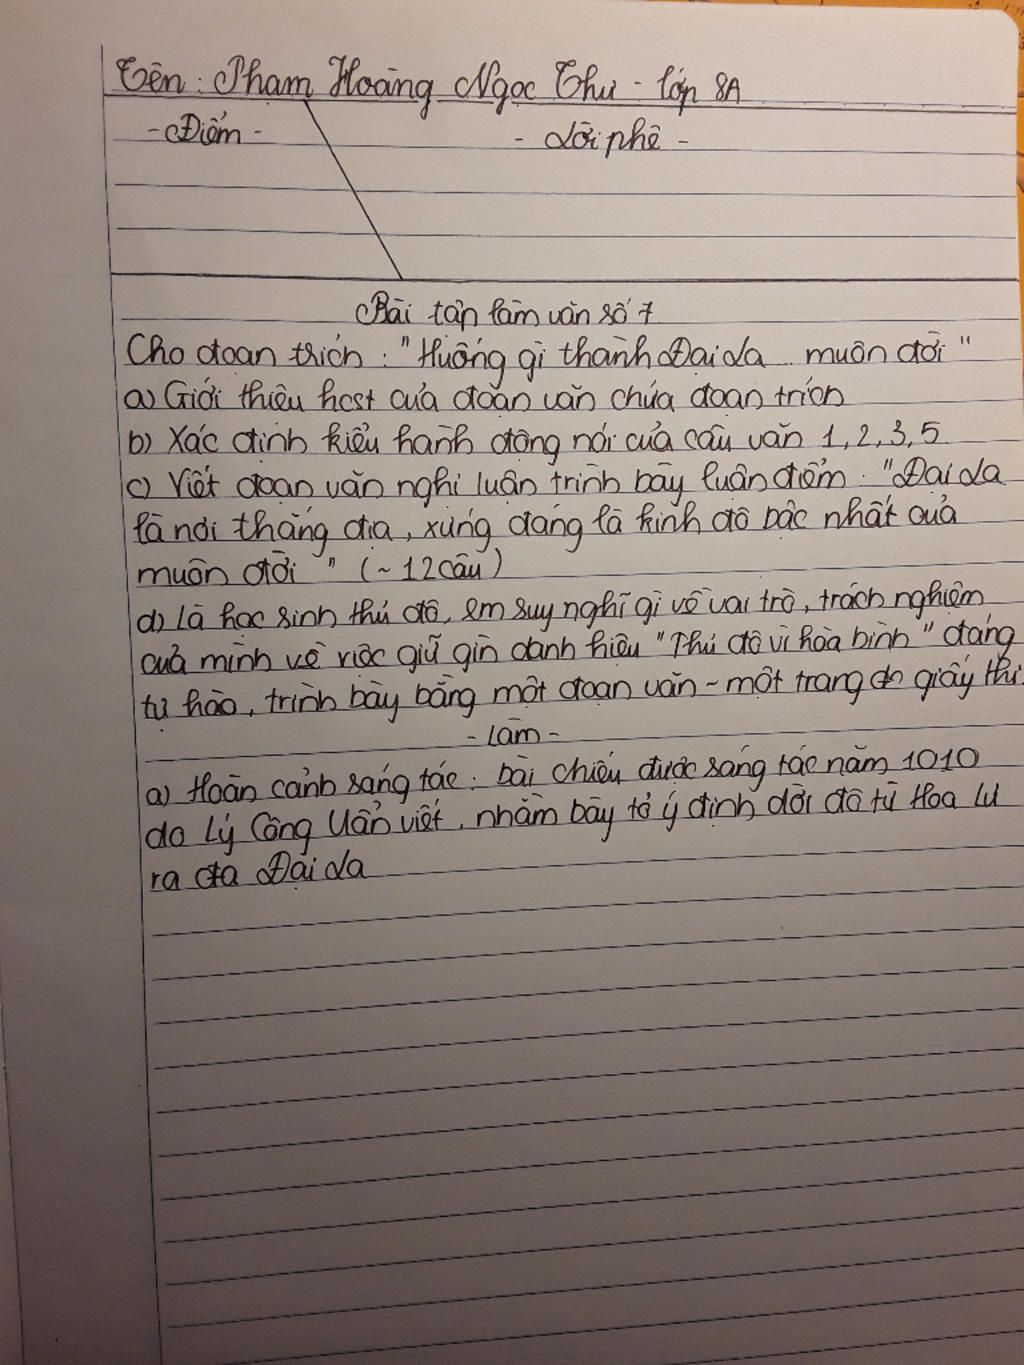 Tên: Phạm Hoàng Ngọc Thư - lớp 8A
- Điểm -
- Lời phê -
Bài tập làm văn số 7
Cho đoạn trích: "Huống gì thành Đại La ... muôn đời"
a) Giới thiệu hcst của đoạn văn chứa đoạn trích
b) Xác định kiểu hành động nói của câu văn 1, 2, 3, 5
c) Viết đoạn văn nghị luận trình bày luận điểm: "Đại La
là nơi thắng địa, xứng đáng là kinh đô bậc nhất của
muôn đời" (~ 12 câu)
d) Là học sinh thủ đô, em suy nghĩ gì về vai trò, trách nghiệm
của mình về việc giữ gìn danh hiệu "Thủ đô vì hòa bình" đáng
tự hào, trình bày bằng một đoạn văn ~ một trang giấy thi.
- Làm -
a) Hoàn cảnh sáng tác: bài chiếu được sáng tác năm 1010
do Lý Công Uẩn viết, nhằm bày tỏ ý định dời đô từ Hoa Lư
ra Đại La